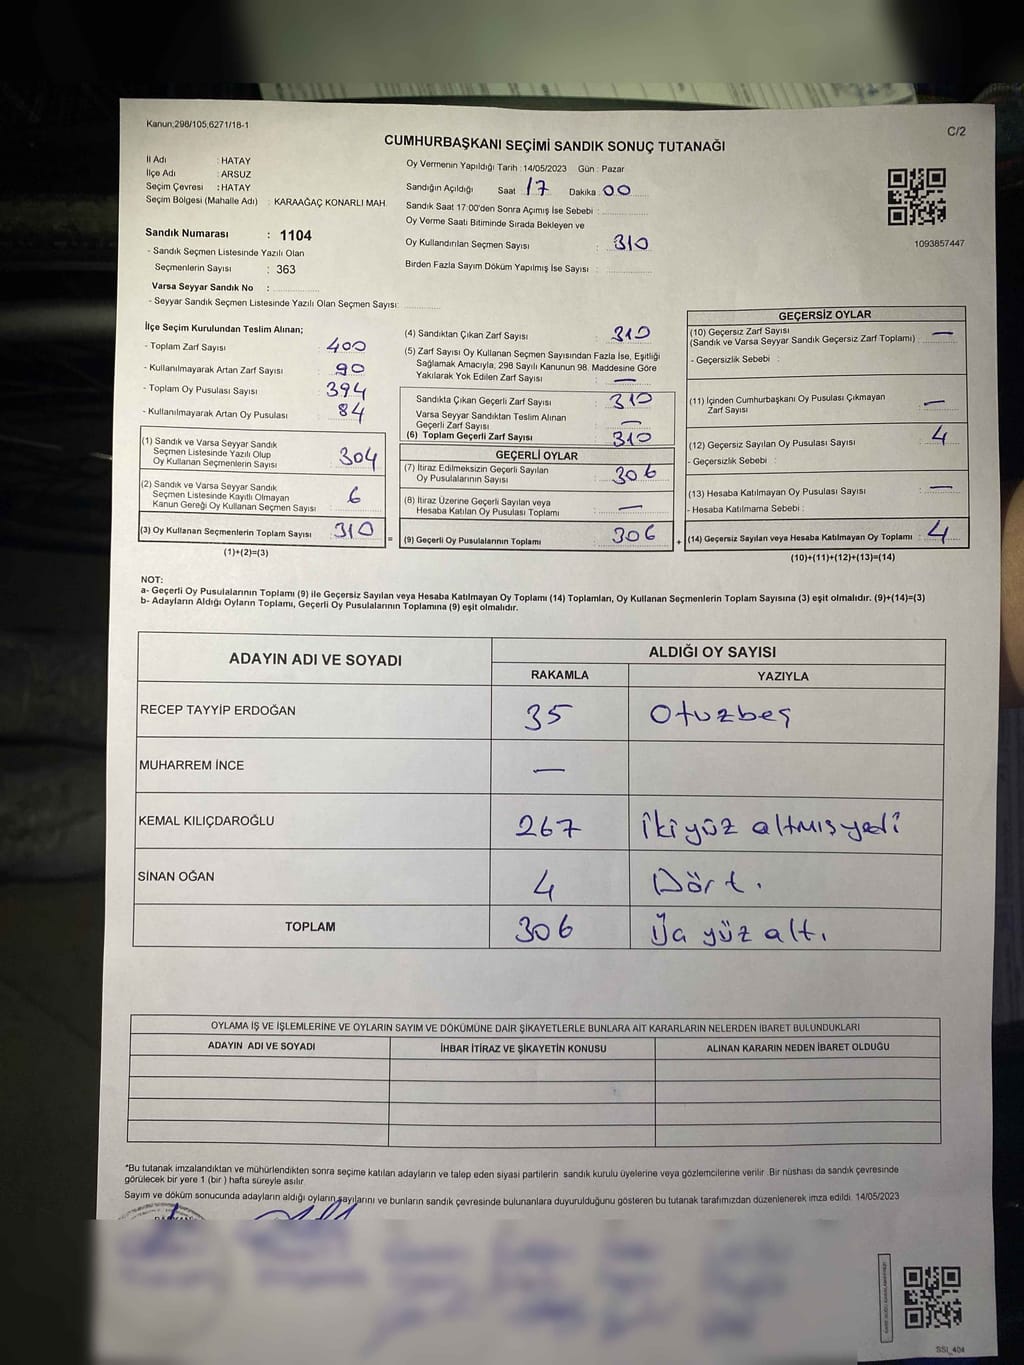 Kanun;298/105,6271/18-1
C/2
CUMHURBAŞKANI SEÇİMİ SANDIK SONUÇ TUTANAĞI
İl Adı : HATAY
İlçe Adı : ARSUZ
Seçim Çevresi : HATAY
Seçim Bölgesi (Mahalle Adı) : KARAAĞAÇ KONARLI MAH.
Sandık Numarası : 1104
- Sandık Seçmen Listesinde Yazılı Olan
Seçmenlerin Sayısı : 363
Varsa Seyyar Sandık No :
- Seyyar Sandık Seçmen Listesinde Yazılı Olan Seçmen Sayısı:
Oy Vermenin Yapıldığı Tarih : 14/05/2023 Gün : Pazar
Sandığın Açıldığı Saat 17 Dakika : 00
Sandık Saat 17:00'den Sonra Açımış İse Sebebi :
Oy Verme Saati Bitiminde Sırada Bekleyen ve
Oy Kullandırılan Seçmen Sayısı : 310
Birden Fazla Sayım Döküm Yapılmış İse Sayısı :
1093857447
İlçe Seçim Kurulundan Teslim Alınan;
- Toplam Zarf Sayısı : 400
- Kullanılmayarak Artan Zarf Sayısı : 90
- Toplam Oy Pusulası Sayısı : 394
- Kullanılmayarak Artan Oy Pusulası : 84
(1) Sandık ve Varsa Seyyar Sandık
Seçmen Listesinde Yazılı Olup
Oy Kullanan Seçmenlerin Sayısı : 304
(2) Sandık ve Varsa Seyyar Sandık
Seçmen Listesinde Kayıtlı Olmayan
Kanun Gereği Oy Kullanan Seçmen Sayısı : 6
(3) Oy Kullanan Seçmenlerin Toplam Sayısı : 310
(1)+(2)=(3)
=
(4) Sandıktan Çıkan Zarf Sayısı : 310
(5) Zarf Sayısı Oy Kullanan Seçmen Sayısından Fazla İse, Eşitliği
Sağlamak Amacıyla, 298 Sayılı Kanunun 98. Maddesine Göre
Yakılarak Yok Edilen Zarf Sayısı : —
Sandıkta Çıkan Geçerli Zarf Sayısı : 310
Varsa Seyyar Sandıktan Teslim Alınan
Geçerli Zarf Sayısı : —
(6) Toplam Geçerli Zarf Sayısı : 310
GEÇERLİ OYLAR
(7) İtiraz Edilmeksizin Geçerli Sayılan
Oy Pusulalarının Sayısı : 306
(8) İtiraz Üzerine Geçerli Sayılan veya
Hesaba Katılan Oy Pusulası Toplamı : —
(9) Geçerli Oy Pusulalarının Toplamı : 306
+
GEÇERSİZ OYLAR
(10) Geçersiz Zarf Sayısı
(Sandık ve Varsa Seyyar Sandık Geçersiz Zarf Toplamı) : —
- Geçersizlik Sebebi :
(11) İçinden Cumhurbaşkanı Oy Pusulası Çıkmayan
Zarf Sayısı : —
(12) Geçersiz Sayılan Oy Pusulası Sayısı : 4
- Geçersizlik Sebebi :
(13) Hesaba Katılmayan Oy Pusulası Sayısı : —
- Hesaba Katılmama Sebebi :
(14) Geçersiz Sayılan veya Hesaba Katılmayan Oy Toplamı : 4
(10)+(11)+(12)+(13)=(14)
NOT:
a- Geçerli Oy Pusulalarının Toplamı (9) ile Geçersiz Sayılan veya Hesaba Katılmayan Oy Toplamı (14) Toplamları, Oy Kullanan Seçmenlerin Toplam Sayısına (3) eşit olmalıdır. (9)+(14)=(3)
b- Adayların Aldığı Oyların Toplamı, Geçerli Oy Pusulalarının Toplamına (9) eşit olmalıdır.
ADAYIN ADI VE SOYADI
ALDIĞI OY SAYISI
RAKAMLA YAZIYLA
RECEP TAYYİP ERDOĞAN 35 Otuzbeş
MUHARREM İNCE —
KEMAL KILIÇDAROĞLU 267 İkiyüz altmış yedi
SİNAN OĞAN 4 Dört.
TOPLAM 306 yüz altı
OYLAMA İŞ VE İŞLEMLERİNE VE OYLARIN SAYIM VE DÖKÜMÜNE DAİR ŞİKAYETLERLE BUNLARA AİT KARARLARIN NELERDEN İBARET BULUNDUKLARI
ADAYIN ADI VE SOYADI İHBAR İTİRAZ VE ŞİKAYETİN KONUSU ALINAN KARARIN NEDEN İBARET OLDUĞU
*Bu tutanak imzalandıktan ve mühürlendikten sonra seçime katılan adayların ve talep eden siyasi partilerin sandık kurulu üyelerine veya gözlemcilerine verilir .Bir nüshası da sandık çevresinde
görülecek bir yere 1 (bir ) hafta süreyle asılır.
Sayım ve döküm sonucunda adayların aldığı oyların sayılarını ve bunların sandık çevresinde bulunanlara duyurulduğunu gösteren bu tutanak tarafımızdan düzenlenerek imza edildi. 14/05/2023
SSI_404